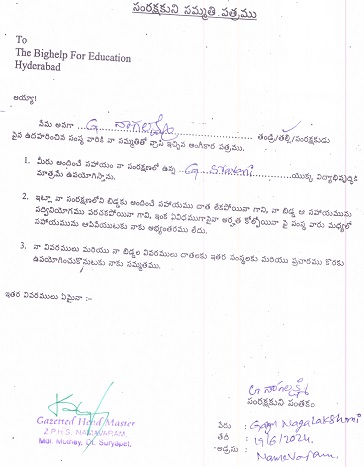 సంరక్షకుని సమ్మతి పత్రము
To
The Bighelp For Education
Hyderabad
అయ్యా!
నేను అనగా G నాగలక్ష్మి తండ్రి/తల్లి/సంరక్షకుడు
పైన ఉదహరించిన సంస్థ వారికి నా సమ్మతితో వ్రాసి ఇచ్చిన అంగీకార పత్రము.
1. మీరు అందించే సహాయం నా సంరక్షణలో ఉన్న G. యొక్క విద్యాభివృద్ధికి
మాత్రమే ఉపయోగిస్తాను.
2. ఇట్లా నా సంరక్షణలోని బిడ్డకు అందించే సహాయము దాత లేకపోయినా గాని, నా బిడ్డ ఆ సహాయమును
సద్వినియోగము పరచకపోయినా గాని, ఇంక ఏవిధముగానైనా అర్హత కోల్పోయినా పై సంస్థ వారు మధ్యలో
సహాయమును ఆపివేయుటకు నాకు అభ్యంతరము లేదు.
3. నా వివరములు మరియు నా బిడ్డల వివరములు దాతలకు ఇతర సంస్థలకు మరియు ప్రచారము కొరకు
ఉపయోగించుకొనుటకు నాకు సమ్మతము.
ఇతర వివరములు ఏమైనా :-
G నాగలక్ష్మి
సంరక్షకుని సంతకం
Gazetted Head Master
Z.P.H.S. NAMAVARAM
Mdl. Mothey, Dt. Suryapet.
పేరు : NagaLakshmi
తేదీ : 19/6/2024.
అడ్రసు : Namavaram.